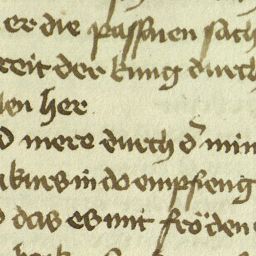 er die passauen sach
reit der kung durch
len her
d mere durch d' min
kurs in do empfieng
d das es mit fröden